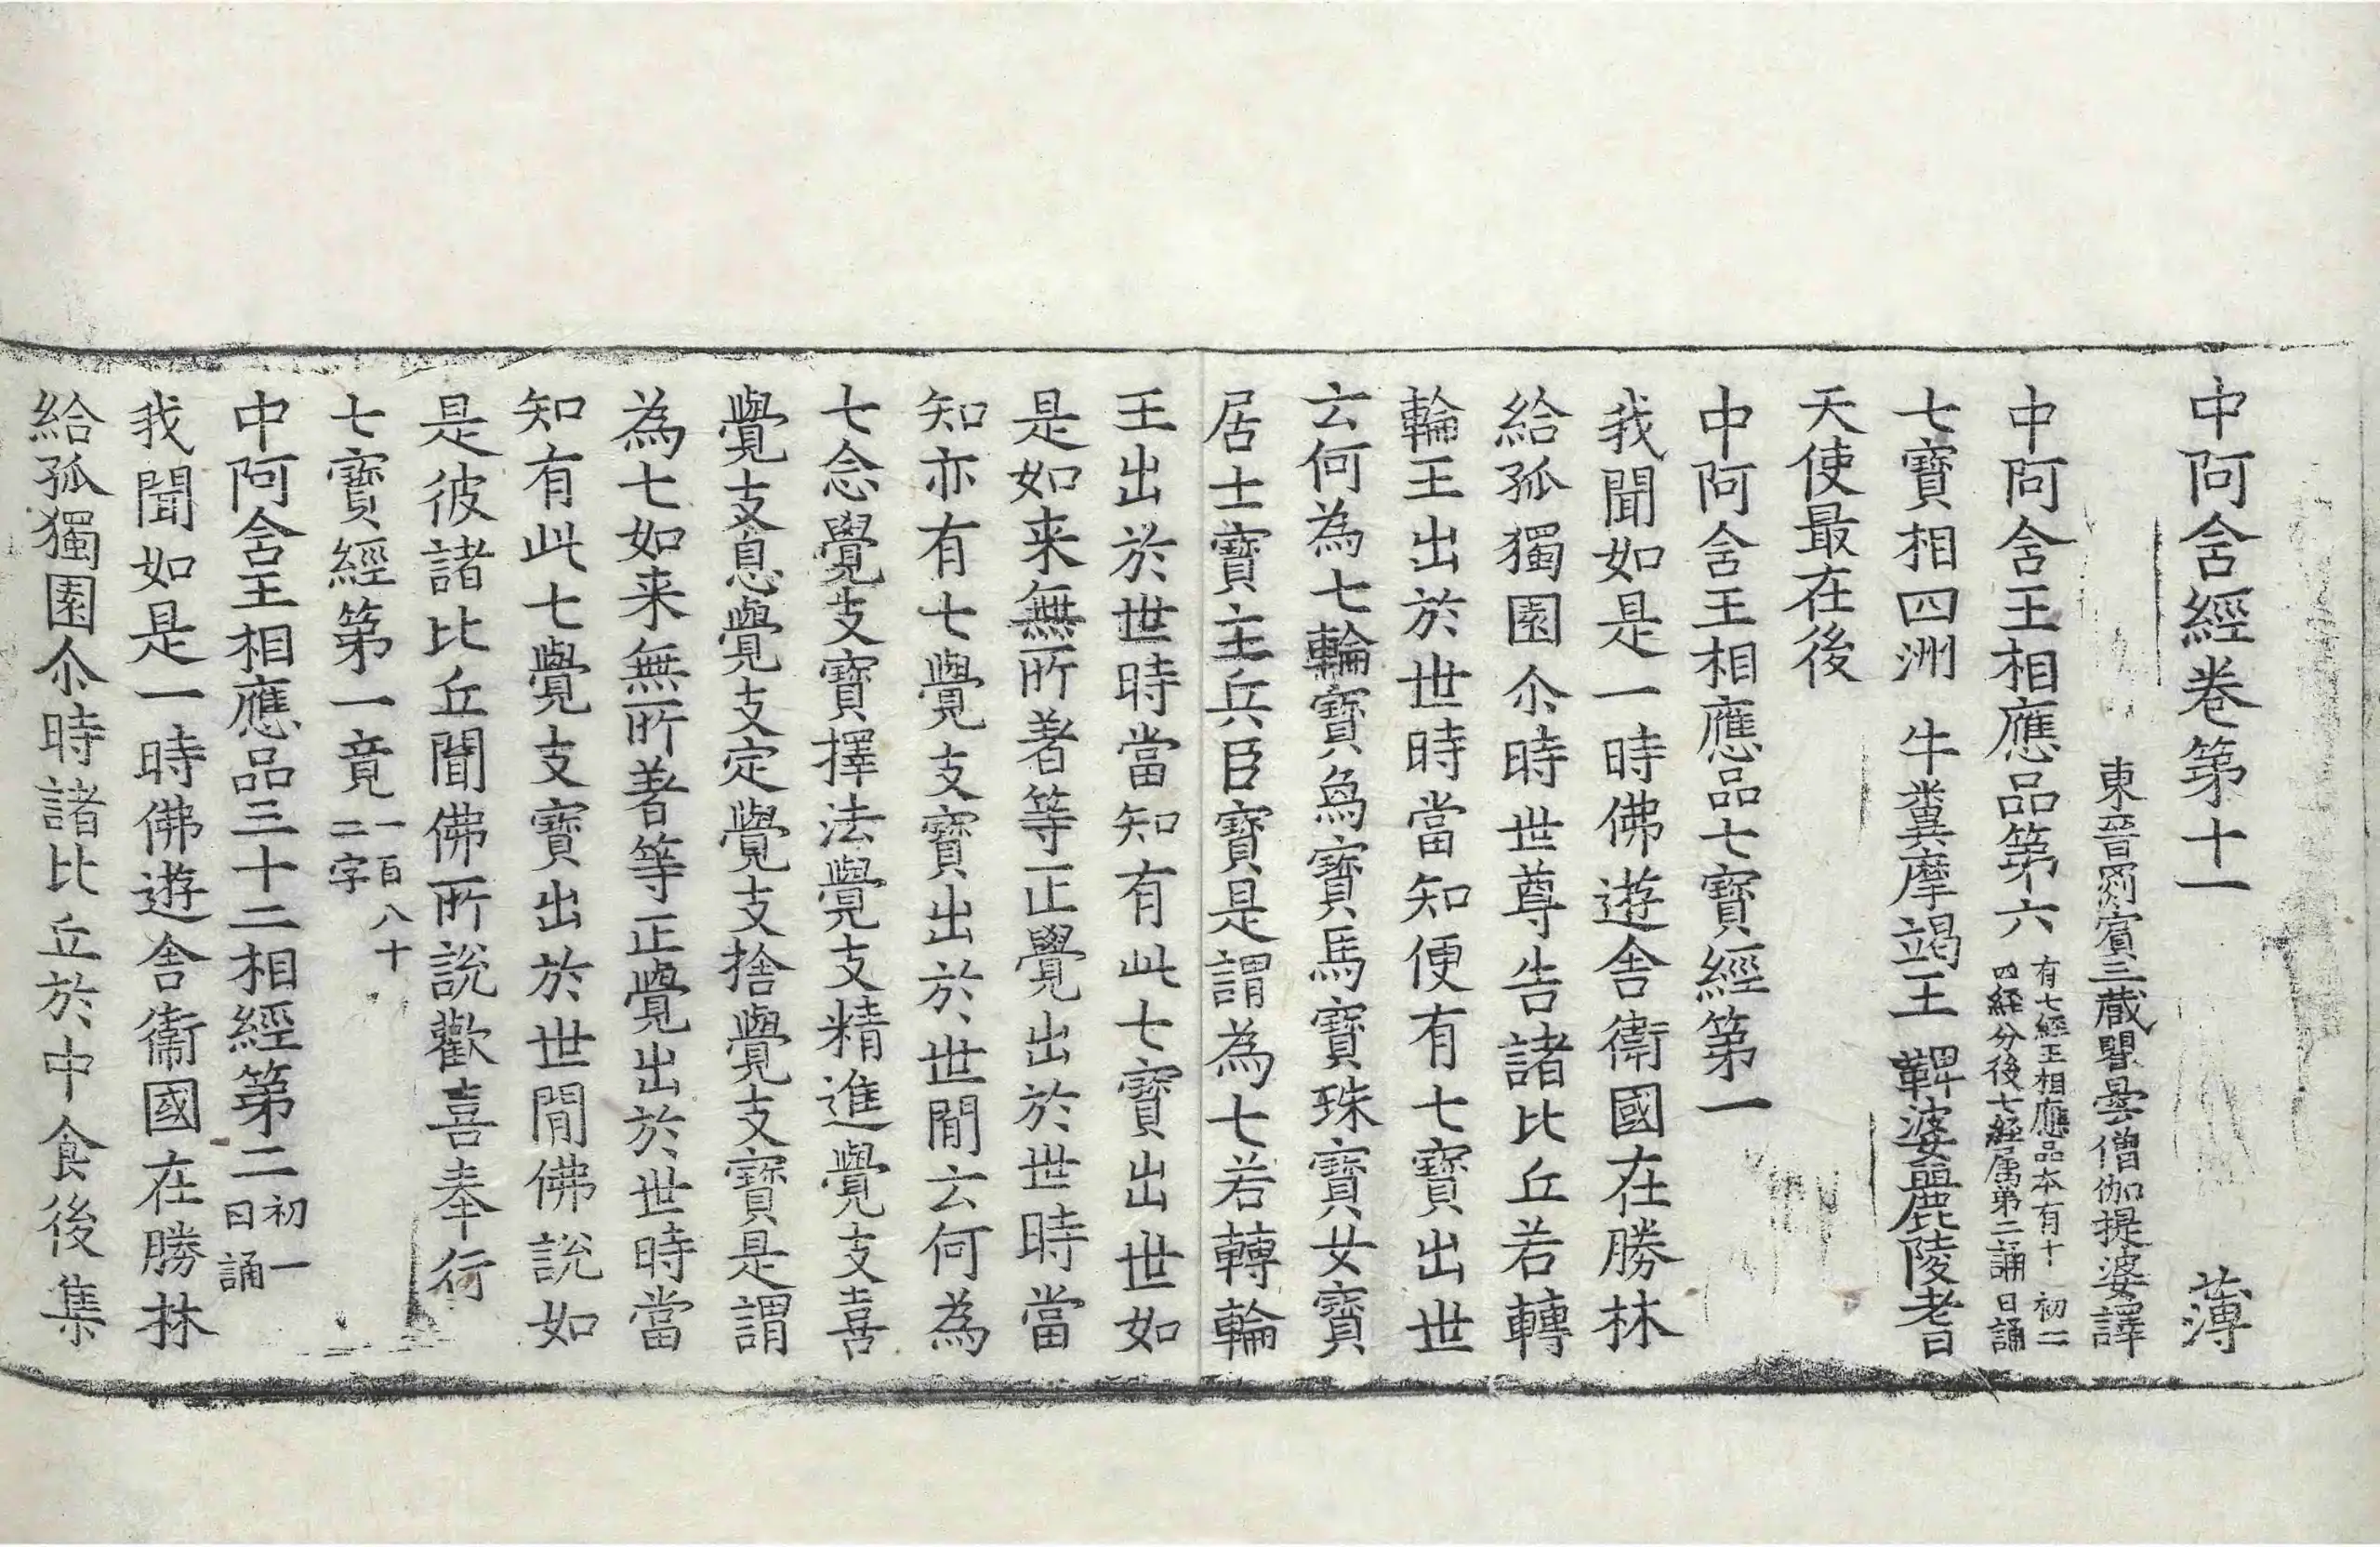 中阿含經卷第十一 薄
東晉罽賓三藏瞿曇僧伽提婆譯
中阿含王相應品第六 有七經王相應品本有十四經分後七經属第二誦 初一日誦
七寶相四洲 牛糞摩竭王 鞞婆麗陵耆
天使最在後
中阿含王相應品七寶經第一
我聞如是一時佛遊舍衛國在勝林
給孤獨園尒時世尊告諸比丘若轉
輪王出於世時當知便有七寶出世
云何為七輪寶烏寶馬寶珠寶女寶
居士寶主兵臣寶是謂為七若轉輪
王出於世時當知有此七寶出世如
是如来無所著等正覺出於世時當
知亦有七覺支寶出於世間云何為
七念覺支寶擇法覺支精進覺支喜
覺支息覺支定覺支捨覺支寶是謂
為七如来無所著等正覺出於世時當
知有此七覺支寶出於世間佛說如
是彼諸比丘聞佛所說歡喜奉行
七寶經第一竟 一百八十二字
中阿含王相應品三十二相經第二 初一日誦
我聞如是一時佛遊舍衛國在勝林
給孤獨園尒時諸比丘於中食後集